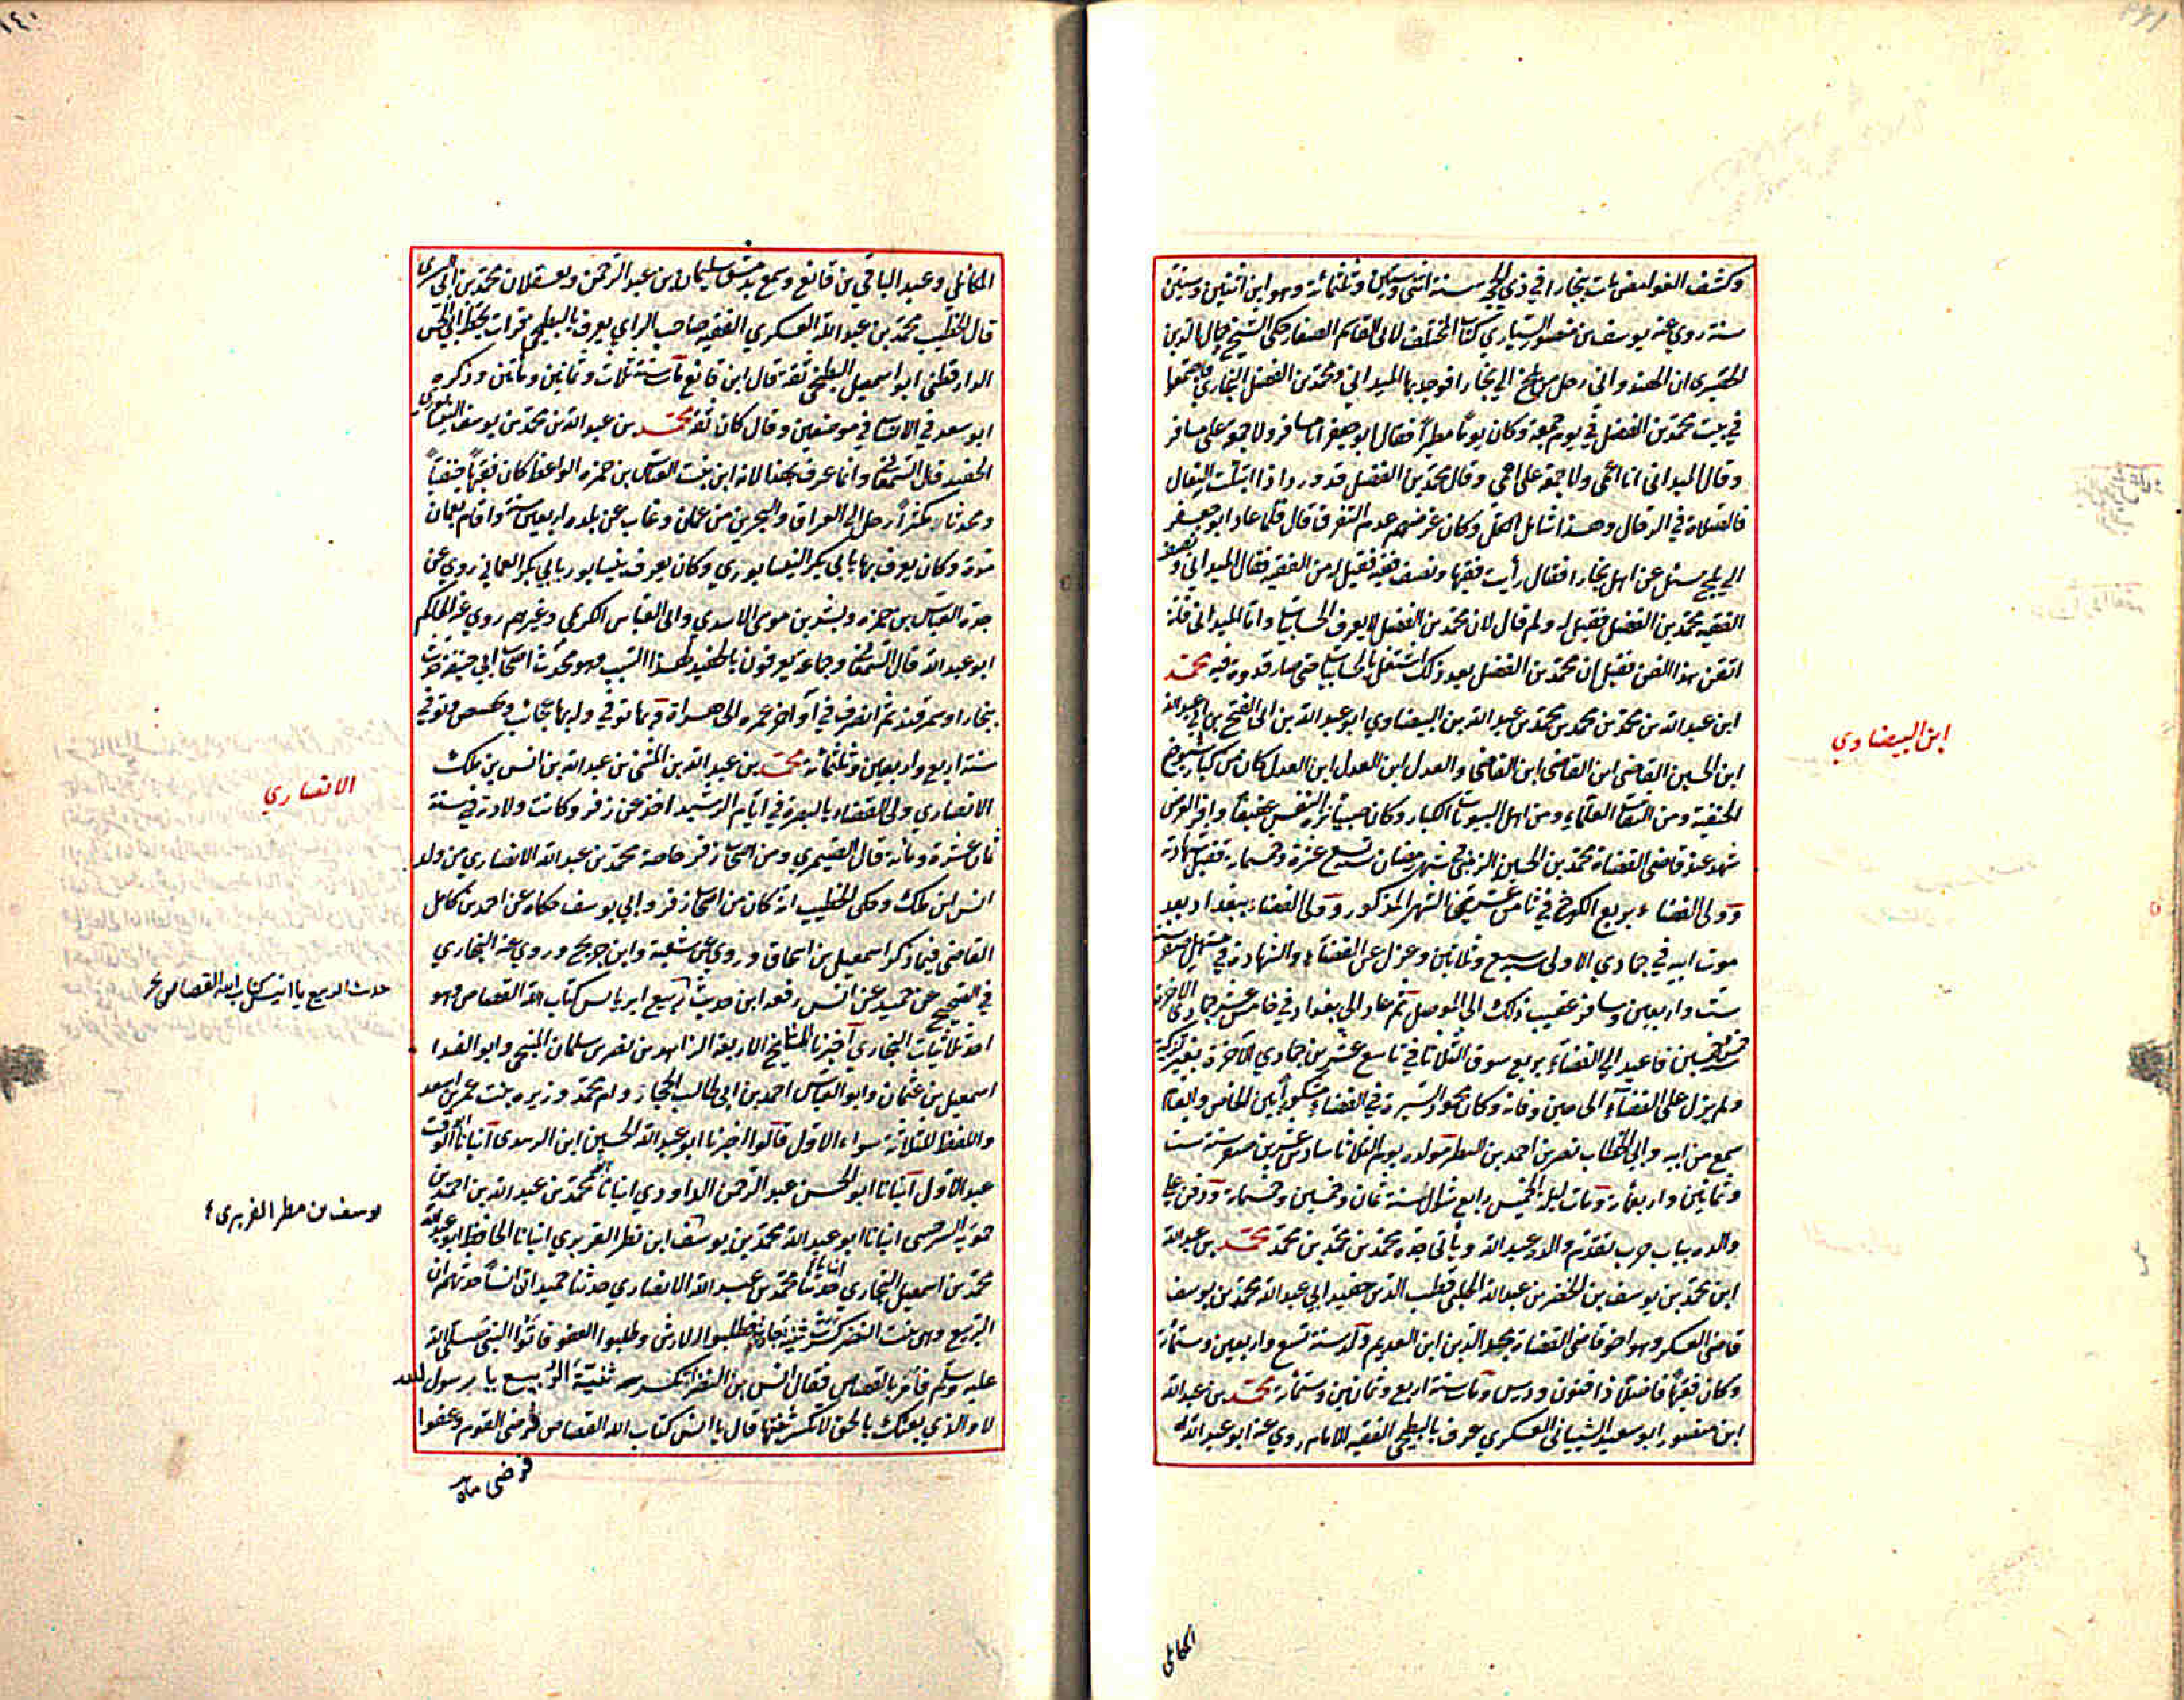 وكشف الغوامض مات ببخارا في ذي الحجة سنة اثنتي وستين وثلثمائة وهو ابن اثنين وستين
سنة روي عنه يوسف بن منصور السياري كتاب المختلف لابي القاسم الصفار حكى الشيخ جمال الدين
الحصيري ان الهندواني رحل من بلخ الي بخارا فوجد بها الميداني ومحمد بن الفضل البخاري فاجتمعوا
في بيت محمد بن الفضل في يوم جمعة وكان يوماً مطيراً فقال ابو جعفر انا مسافر ولا جمعة على مسافر
وقال الميداني انا اعمى ولا جمعة على اعمى وقال محمد بن الفضل قد ورد اذا ابتلت النعال
فالصلاة في الرحال وهذا شامل الكل وكان غرضهم عدم التفرق قال فلما عاد ابو جعفر
الي بلخ سئل عن اهل بخارا فقال رأيت فقيها ونصف فقيه فقيل له من الفقيه فقال الميداني ونصف
الفقيه محمد بن الفضل فقيل له ولم قال لان محمد بن الفضل لا يعرف الحسابيات واما الميداني فلقد
اتقن هذا الفن فقيل ان محمد بن الفضل بعد ذلك اشتغل بالحسابيات حتى صار قدوة فيه محمد
ابن عبد الله بن محمد بن محمد بن محمد بن عبد الله بن البيضاوي ابو عبد الله بن ابي الفتح بن ابي عبد الله
ابن الحسين القاضي ابن القاضي ابن القاضي والعدل ابن العدل ابن العدل كان من كبار شيوخ
الحنفية ومن الثقات العلماء ومن اهل البيوتات الكبار وكان مهيباً نزه النفس عفيفاً وافر الوقار
شهد عند قاضي القضاة محمد بن الحسين الزينبي في شهر رمضان سنة تسع عشرة وخمسمائة فقبل شهادته
وولى القضاء بربع الكرخ في ثامن عشري الشهر المذكور وولى القضاء ببغداد بعد
موت ابيه في جمادي الاولى سنة سبع وثلاثين وعزل عن القضاء والشهادة في مستهل صفر سنة
ست واربعين وسافر عقيب ذلك الى الموصل ثم عاد الى بغداد في خامس عشر جمادي الاخرة
سنة خمسين فاعيد الى القضاء بربع سوق الثلاثا في تاسع عشر من جمادي الاخرة بغير تزكية
ولم يزل على القضاء الى حين وفاته وكان محمود السيرة في القضاء مشكوراً بين الخاص والعام
سمع من ابيه وابي الخطاب نصر بن احمد بن البطر مولده يوم الثلاثا سادس عشرين صفر سنة ست
وثمانين واربعمائة ومات ليلة الخميس رابع شوال سنة ثمان وخمسين وخمسمائة ودفن على
والده بباب حرب تقدم والده عبد الله ويأتي جده محمد بن محمد بن محمد محمد بن عبد الله
ابن محمد بن يوسف بن الخضر بن عبد الله الحلبي قطب الدين حفيد ابي عبد الله محمد بن يوسف
قاضي العسكر وهو اخو قاضي القضاة مجد الدين ابن العديم ولد سنة تسع واربعين وستمائة
وكان فقيهاً فاضلاً ذا فنون ودرس ومات سنة اربع وثمانين وستمائة محمد بن عبد الله
ابن منصور ابو سعيد الشيباني العسكري عرف بالبطيخي الفقيه الامام روي عنه ابو عبد الله
ابن البيضاوي
المحاملي
المحاملي وعبد الباقي بن قانع وسمع بدمشق سليمان بن عبد الرحمن وبعسقلان محمد بن ابي السري
قال الخطيب محمد بن عبد الله العسكري الفقيه صاحب الراي يعرف بالبطيخي قرات بخط ابي الحسن
الدارقطني ابو اسمعيل البطيخي ثقة قال ابن قانع مات سنة ثلاث وثمانين ومأتين وذكره
ابو سعد في الانساب في موضعين وقال كان ثقة محمد بن عبد الله بن محمد بن يوسف النيسابوري
الحفيد قال السمعاني وانما عرف بهذا لانه ابن بنت العباس بن حمزه الواعظ كان فقيهاً حنفياً
ومحدثاً مكثراً رحل الى العراق والبحرين من عمان وغاب عن بلده اربعين سنة واقام بعمان
مدة وكان يعرف بها بابي بكر النيسابوري وكان يعرف بنيسابور بابي بكر العماني روي عن
جده العباس بن حمزه وبشر بن موسى الاسدي وابي العباس الكديمي وغيرهم روي عنه الحاكم
ابو عبد الله قال السمعاني وجماعة يعرفون بالحفيد لهذا السبب وهو محدث اصحاب ابي حنيفة حدث
ببخارا وسمرقند ثم انصرف في آواخر عمره الى هراة وبها توفي وله بها عجائب وقصص وتوفي
سنة اربع واربعين وثلثمائة محمد بن عبد الله بن المثنى بن عبد الله بن انس بن ملك
الانصاري ولي القضاء بالبصرة في ايام الرشيد اخذ عن زفر وكانت ولادته في سنة
ثمان عشرة ومائة قال الصيمري ومن اصحاب زفر خاصة محمد بن عبد الله الانصاري من ولد
انس ابن ملك وحكى الخطيب انه كان من اصحاب زفر وابي يوسف حكاه عن احمد بن كامل
القاضي فيما ذكر اسمعيل بن اسحاق وروي عن شعبة وابن جريج وروي عنه البخاري
في الصحيح عن حميد عن انس رفعه ابن حديث ربيع ابر يا انس كتاب الله القصاص وهو
احد ثلاثيات البخاري اخبرنا المشايخ الاربعة الزاهد بن نصر بن سلمان المنبجي وابو الفدا
اسمعيل بن عثمان وابو العباس احمد بن ابي طالب الحجار وام محمد وزيره بنت عمر بن اسعد
واللفظ للثلاثة سواء الاول قالوا اخبرنا ابو عبد الله الحسين ابن الزبيدي انبأنا ابو الوقت
عبد الاول انبانا ابو الحسن عبد الرحمن الداودي انبانا محمد بن عبد الله بن احمد بن
حمويه السرخسي انبانا ابو عبد الله محمد بن يوسف ابن نظر الفربري انبانا الحافظ ابو عبد الله
محمد بن اسمعيل البخاري حدثنا محمد بن عبد الله الانصاري حدثنا حميد ان انساً حدثهم ان
الربيع وهي بنت النضر كسرت ثنية جارية فطلبوا الارش وطلبوا العفو فاتوا النبي صلى الله
عليه وسلم فامر بالقصاص فقال انس بن النضر اتكسر ثنية الربيع يا رسول الله
لا والذي بعثك بالحق لا تكسر ثنيتها قال يا انس كتاب الله القصاص فرضي القوم وعفوا
الانصاري
حدث الربيع يا انس كتاب الله القصاص
يوسف بن مطر الفربري
فرضي